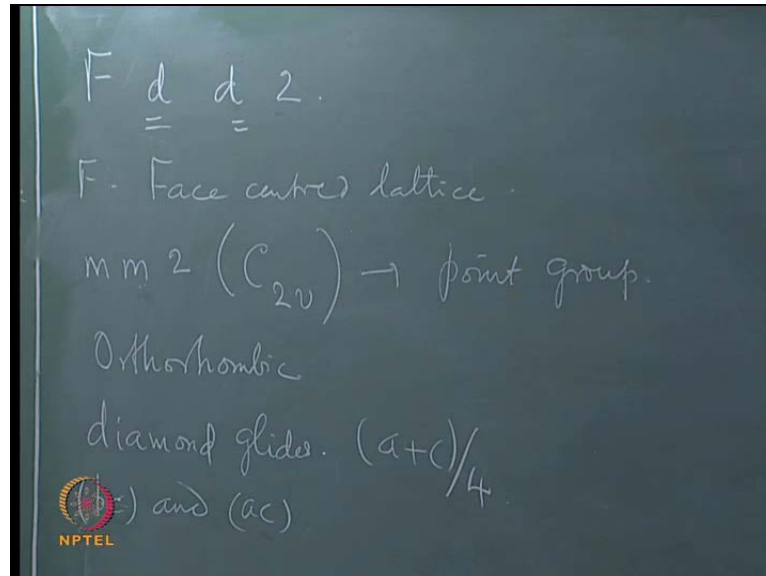 F d d 2.
F - Face centred lattice.
mm2 (C2v) → point group.
Orthorhombic
diamond glides. (a+c)/4
) and (ac)
NPTEL